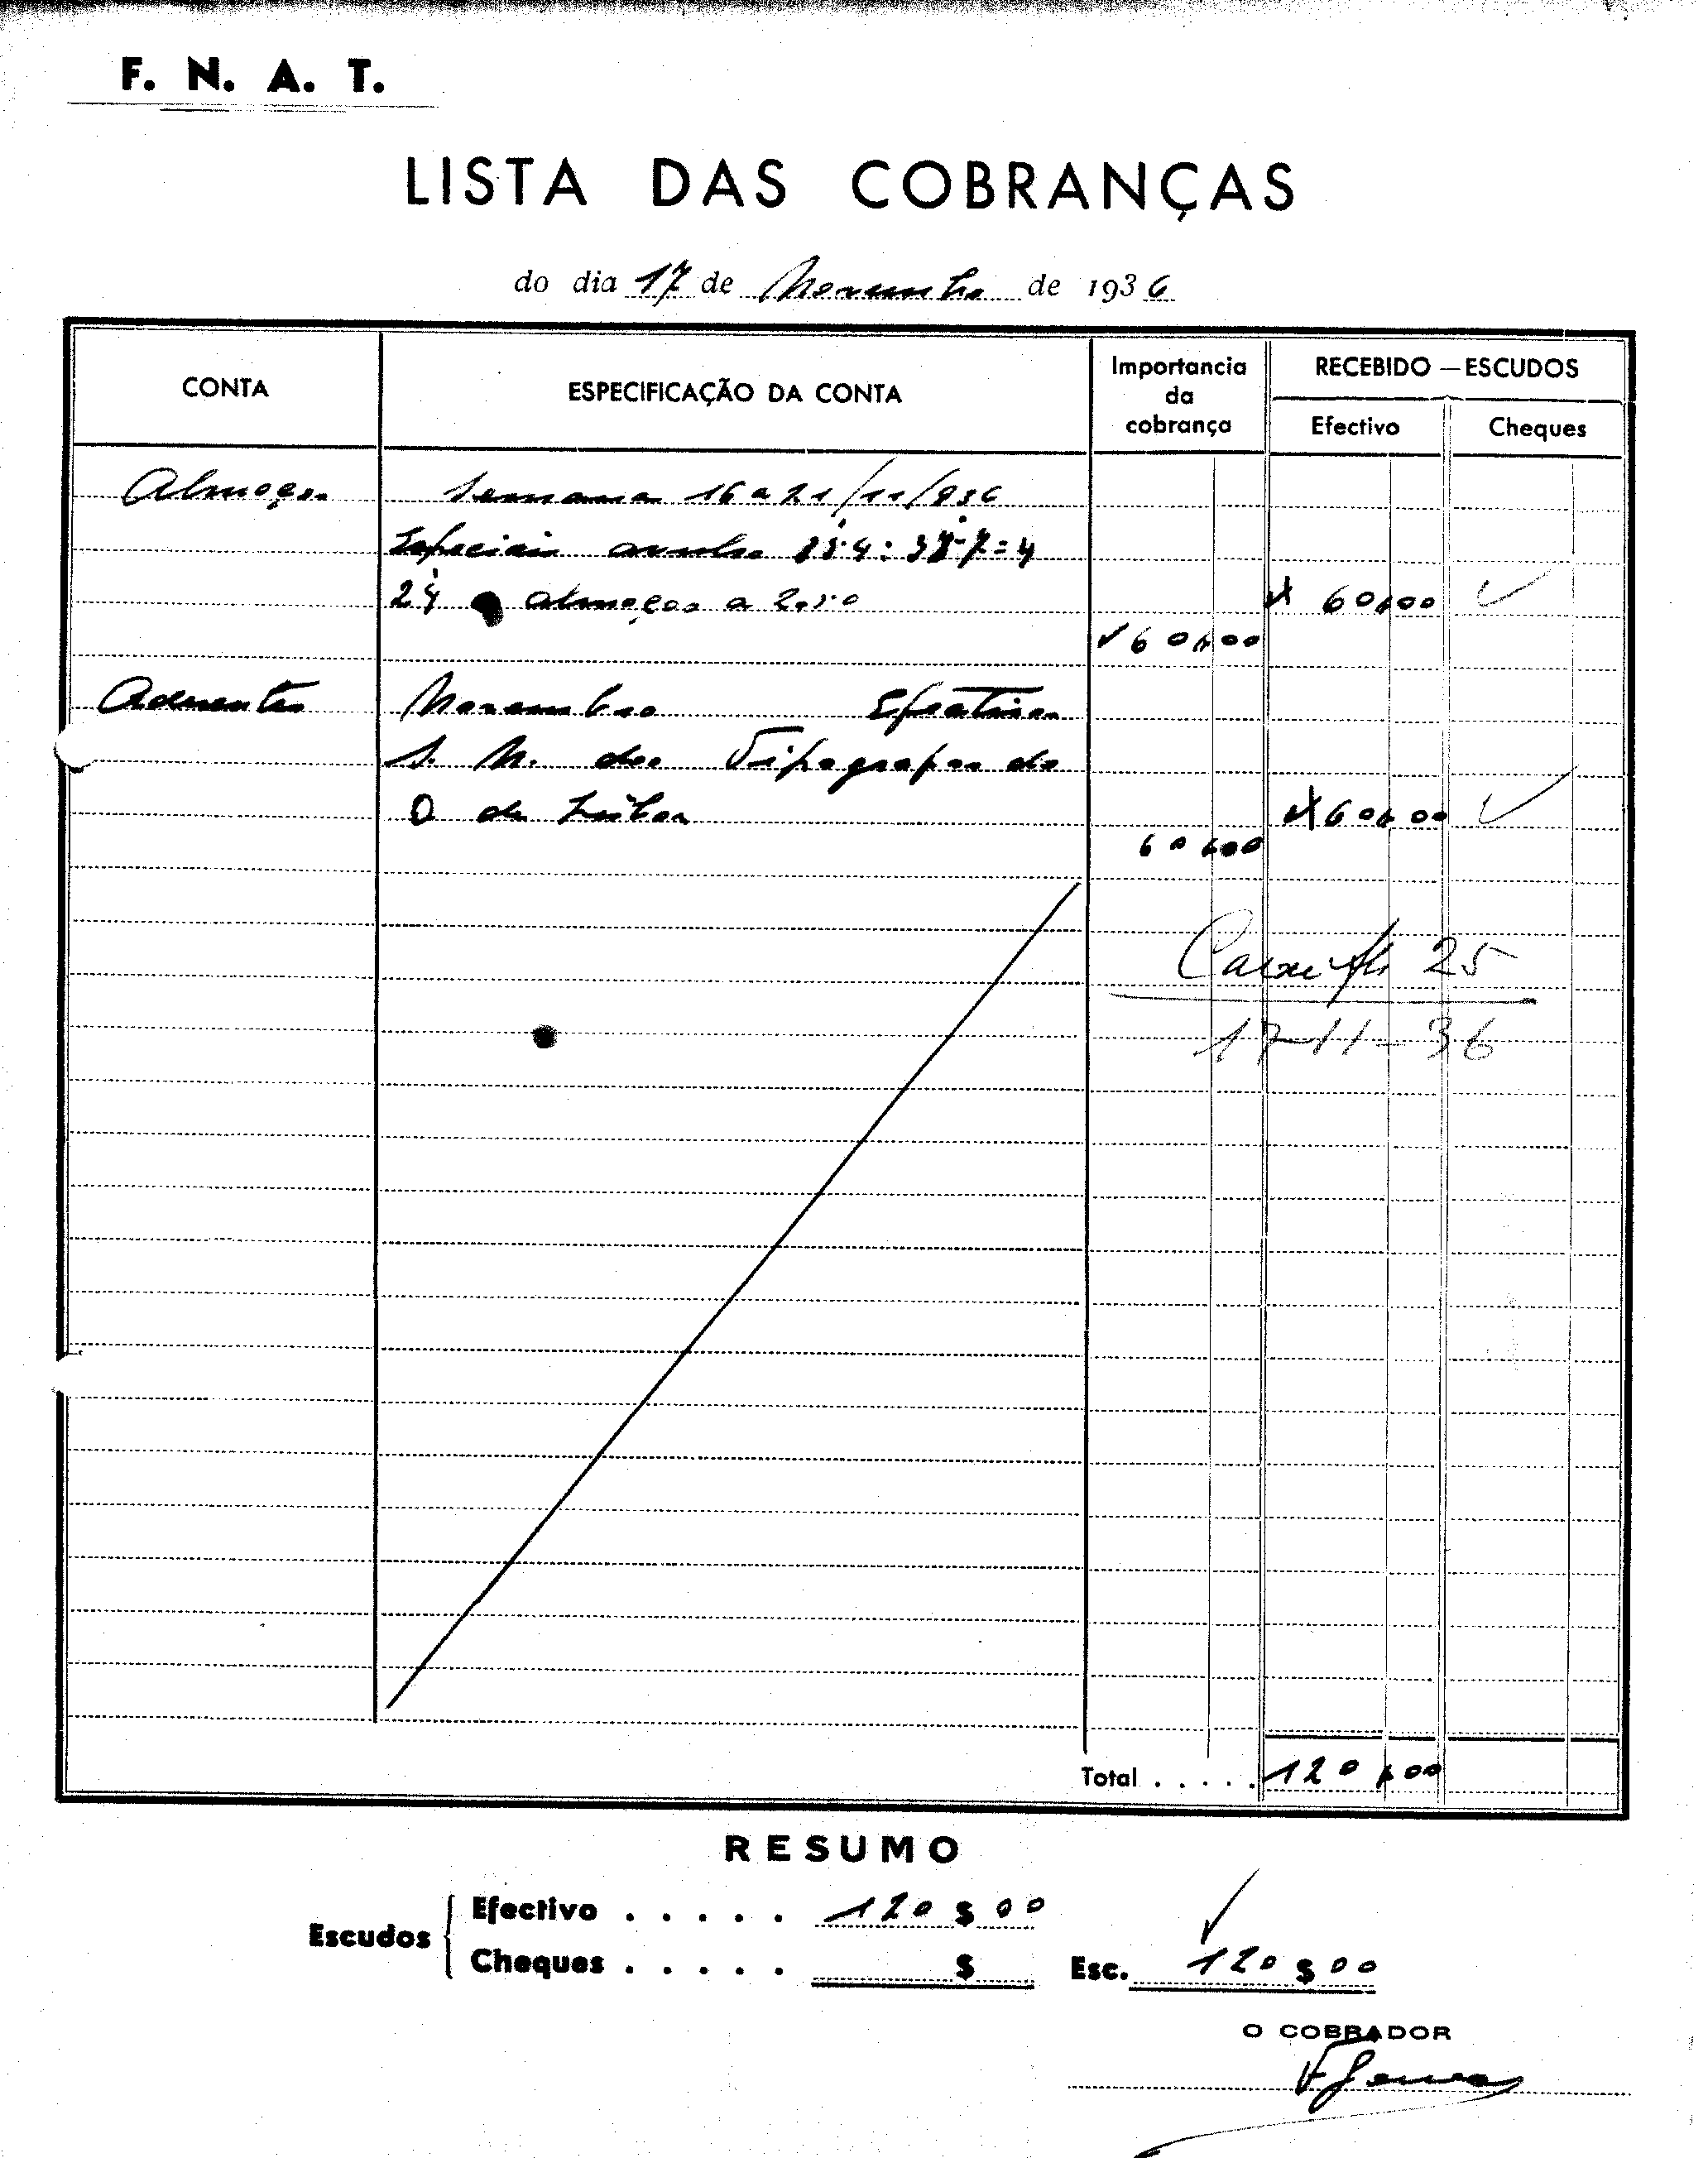 F. N. A. T.
LISTA DAS COBRANÇAS
do dia 17 de Novembro de 1936
CONTA
ESPECIFICAÇÃO DA CONTA
Importancia
da
cobrança
RECEBIDO — ESCUDOS
Efectivo
Cheques
Almoços
Semana 16 a 21/11/936
Especiais avulso
24 almoços a 2,50
60$00
60$00
Aderentes
Novembro Efectivos
S. N. dos Tipografos do
D de Lisboa
60$00
60$00
Caixa fls 25
17-11-36
Total . . . . . 120$00
RESUMO
Escudos
Efectivo . . . . . 120$00
Cheques . . . . . $
Esc. 120$00
O COBRADOR